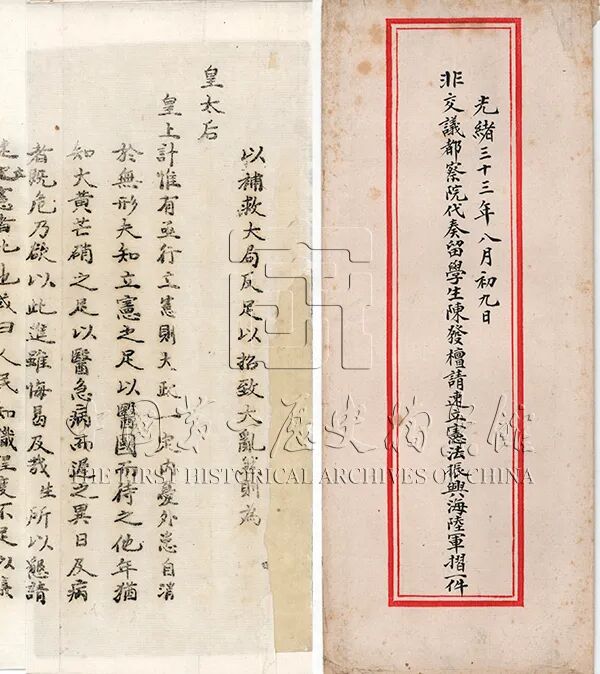 光緒三十三年八月初九日
非交議都察院代奏留學生陳發檀請速立憲法振興海陸軍摺一件
以補救大局反足以招致大亂然則為
皇太后
皇上計惟有亟行立憲則大政一定內憂外患自消
於無形夫知立憲之足以醫國而待之他年猶
知大黃芒硝之足以醫急病而遲之異日及病
者既危乃欲以此進雖悔曷及哉生所以懇請
速立憲者此也或曰人民知識程度不足以議
中國第一歷史檔案館
THE FIRST HISTORICAL ARCHIVES OF CHINA